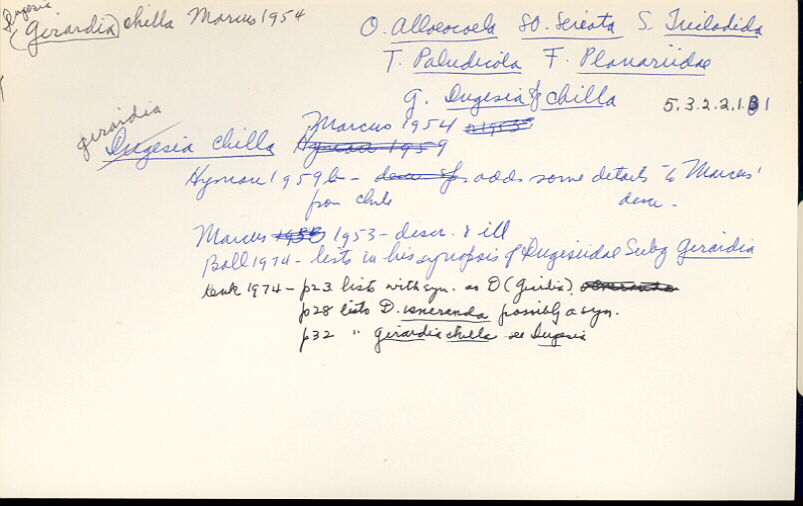 Dugesia
(Girardia) chilla Marcus 1954
O. Alloeocoela SO. Seriata S. Tricladida
T. Paludicola F. Planariidae
G. Dugesia chilla 5.3.2.2.1.31
girardia
Dugesia chilla Marcus 1954
Hyman 1959
Hyman 1959b - desc of. adds some details to Marcus'
from Chile desc.
Marcus 1953 - descr. & ill
Ball 1974 - lists in his synopsis of Dugesiidae Subg Girardia
Kenk 1974 - p23 lists with syn. as D (Girdia).
p28 lists D. veneranda possibly a syn.
p32 " Girardia chilla see Dugesia